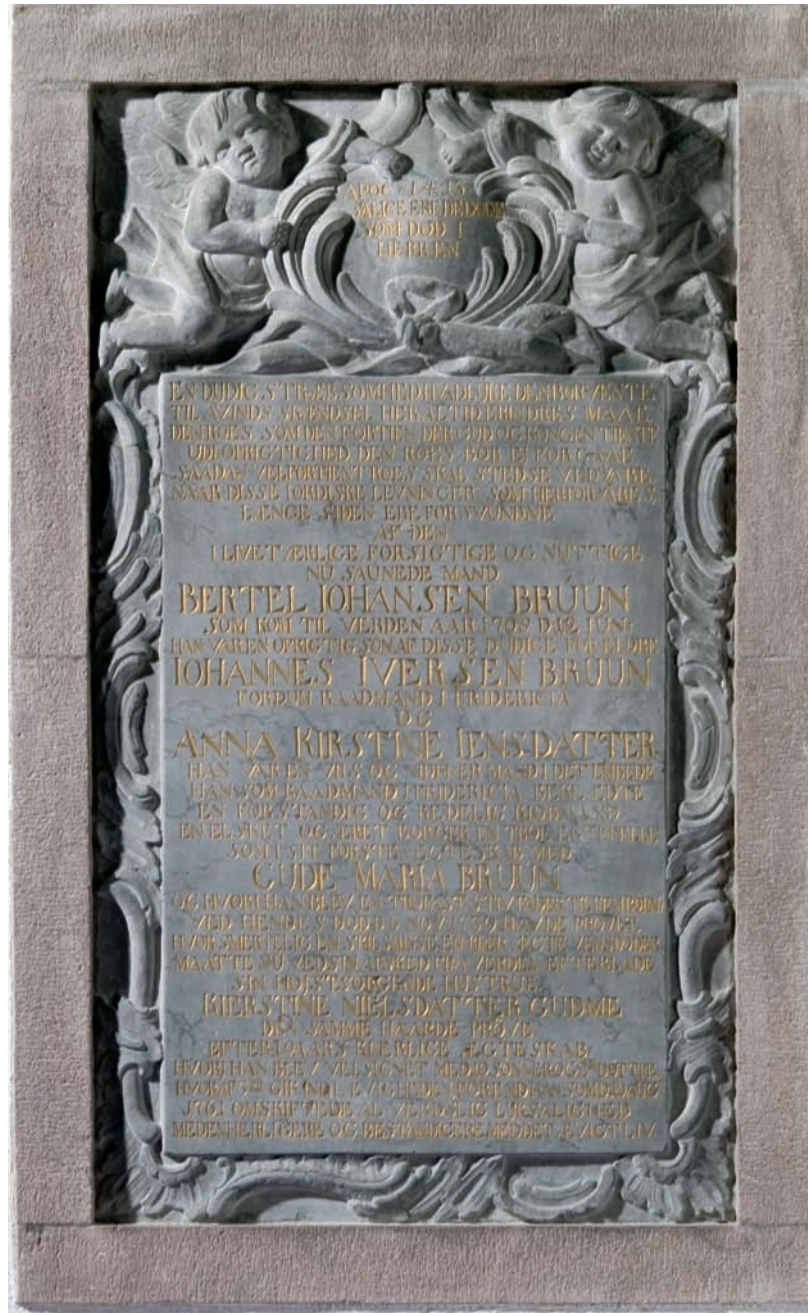 APOC 14 13
SALIGE ERE DE DØDE
SOM DØD I
HERREN
EN DŸDIG STRÆB SOMHED HADLŸKE DEN BØR VENTE
TIL AVINDS SKIÆNDSEL HER ALTID ERINDRES MAAE
DEN ROES SOM DEN FORTIEN DER GUD OG KONGEN TIENTE
UDI OPRIGTIGHED DEN ROES BØR EJ FORGAAE
SAADAN VÆLFORTIENT ROES SKAL STEDSE VEDVARE
NAAR DISSE IORDISKE LEVNINGER SOM HERFORVARES
LÆNGE SIDEN ERE FORSVUNDNE
AF DEN
I LIVET ÆRLIGE FORSIGTIGE OG NŸTTIGE
NU SAUNEDE MAND
BERTEL IOHANSEN BRÚÚN
SOM KOM TIL VERDEN AAR D 12 IUN:
HAN VAR EN OPRIGTIG SØN AF DISSE DŸDIGE FORÆLDRE
IOHANNES IVERSEN BRUUN
FORDUM RAADMAND I FRIDERICIA
OG
ANNA KIRSTINE IENSDATTER
HAN VAR EN VIIS OG NIDKIER MAND I DET EMBEDE
HAN SOM RAADMAND I FRIDERICIA BEKLEDTE
EN FORSTANDIG OG REDELIG
EN ELSKET OG ÆRET BORGER EN TROE ÆGTEFELLE
SOM I SIT FØRSTE ÆGTESKAB MED
GUDE MARIA BRUUN
OG HVORI HAN BLEV EN
VED HENDES DØD D 6 NOV 1739 HAVDE PRØVET
HVOR SMERTELIG EN SKILSMISSE EN KIÆR ÆGTE VENS DØD ER
MAATTE NU VED SIN AFSKED FRA VERDEN EFTERLADE
SIN HØJSTSØRGENDE HUSTRUE
KIERSTINE NIELSDATTER GUDME
DEN SAMME HAARDE PRØVE
EFTER AARS KIERLIGE ÆGTESKAB
HVORI HAN BLEV VELSIGNET MED SØNNER OG DØTTRE
HVORAF GIK IND I EVIGHEDEN FØREND HAN SOM D
1761 OMSKIFTEDE AL VERDSLIG LYKSALIGHED
MED EN HERLIGERE OG BESTANDIGERE MED DET ÆVIGT LIV